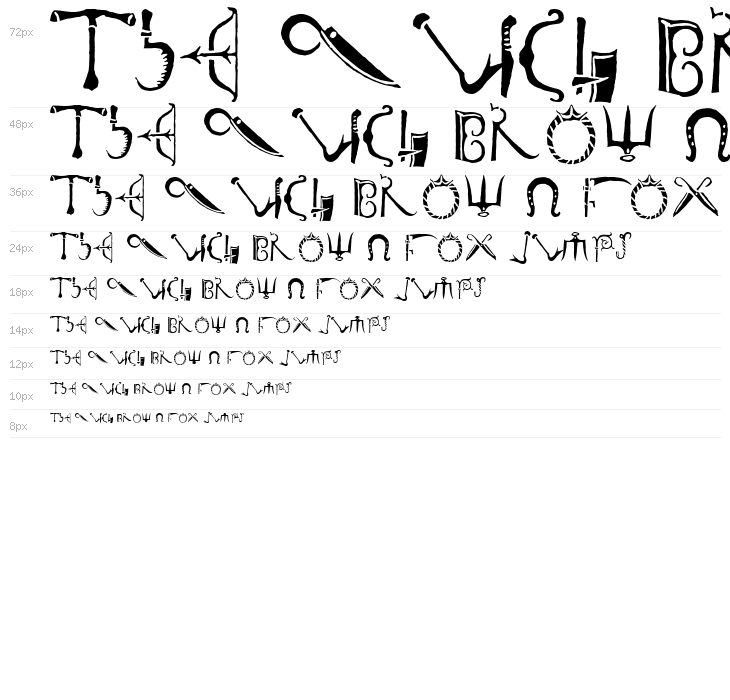 72px THE QUICK BR
48px THE QUICK BROWN
36px THE QUICK BROWN FOX
24px THE QUICK BROWN FOX JUMPS
18px THE QUICK BROWN FOX JUMPS
14px THE QUICK BROWN FOX JUMPS
12px THE QUICK BROWN FOX JUMPS
10px THE QUICK BROWN FOX JUMPS
8px THE QUICK BROWN FOX JUMPS